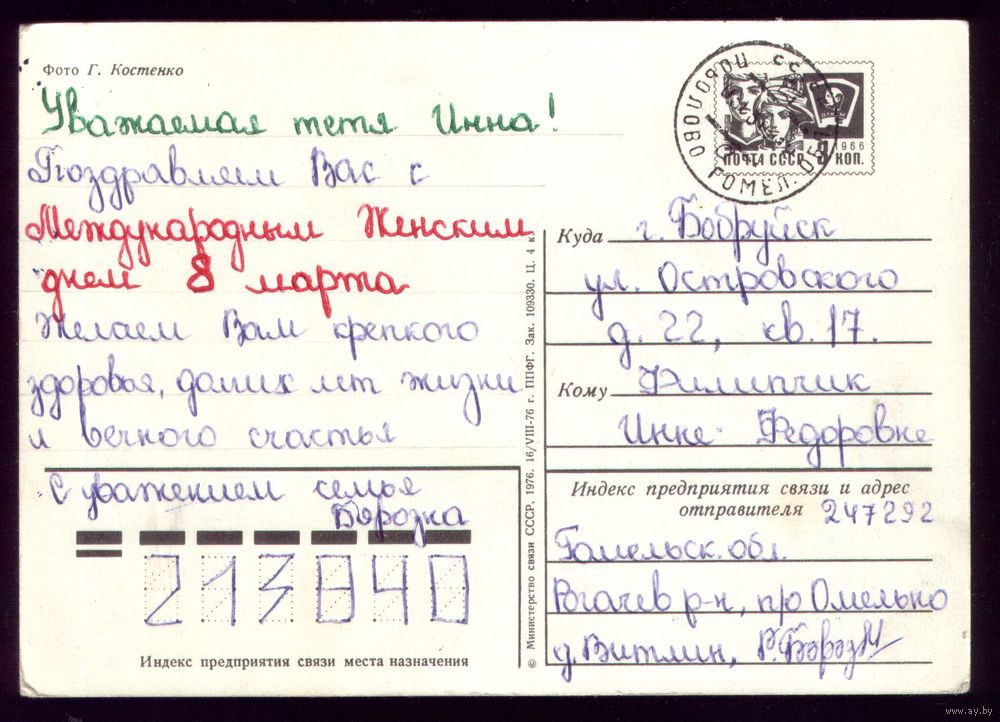 Фото Г. Костенко
Уважаемая тетя Инна!
Поздравляем Вас с
Международным Женским
днем 8 марта
Желаем Вам крепкого
здоровья, долгих лет жизни
и вечного счастья
С уважением семья
Борозна
213840
Индекс предприятия связи места назначения
© Министерство связи СССР, 1976. 16/VIII-76 г. ППФГ. Зак. 109330. Ц. 4 к.
ПОЧТА СССР
1966
КОП.
ГОМЕЛ. ОБЛ.
Куда г. Бобруйск
ул. Островского
д. 22, кв. 17.
Кому Филипчик
Инне Федоровне
Индекс предприятия связи и адрес
отправителя 247292
Гомельск. обл.
Рогачев р-н, п/о
д.
www.ay.by